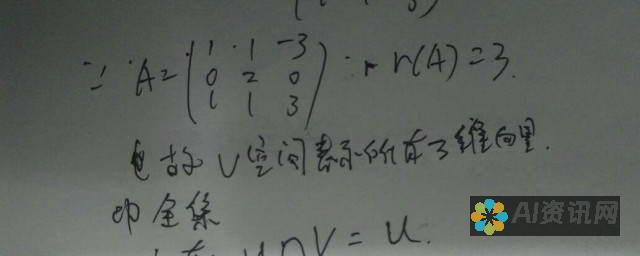 ∵ A=(1 1 -3
0 2 0
1 1 3) ∴ r(A)=3.
也故V空间表示所有3维向量.
即全集
U∩V=U.
AI资讯网